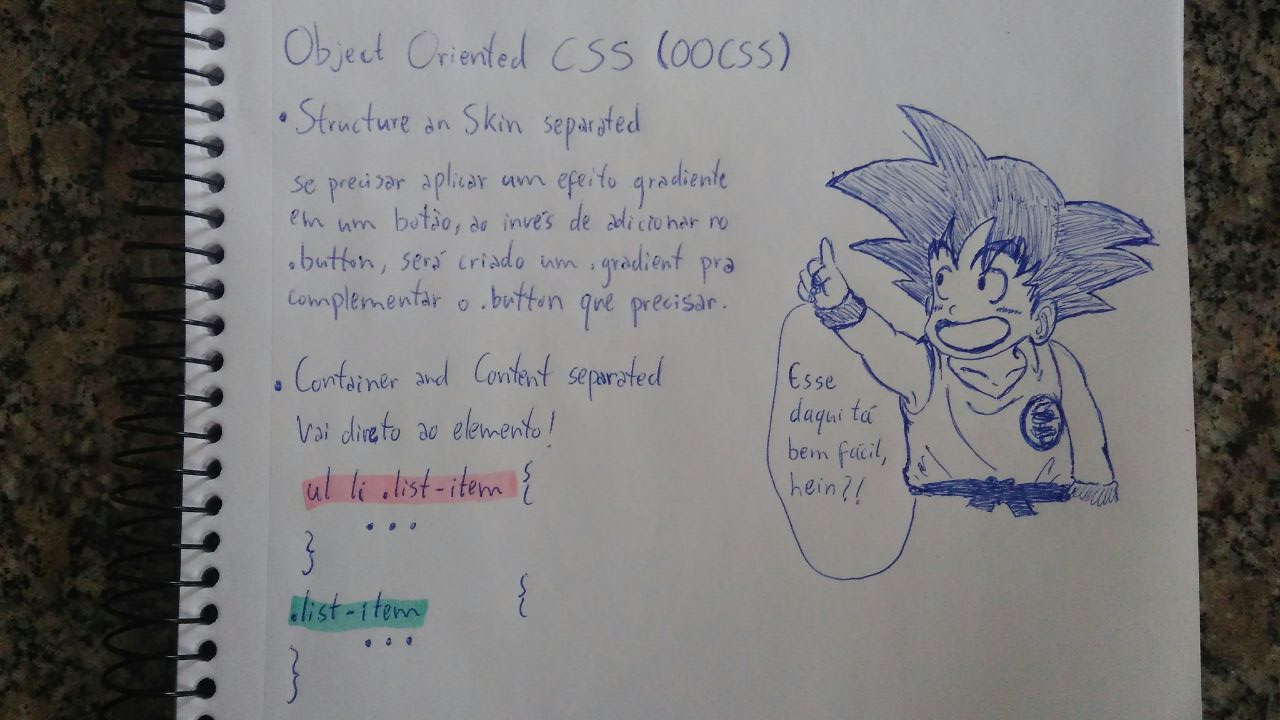 Object Oriented CSS (OOCSS)
• Structure an Skin separated
se precisar aplicar um efeito gradiente
em um botão, ao invés de adicionar no
.button, será criado um .gradient pra
complementar o .button que precisar.
• Container and Content separated
Vai direto ao elemento!
ul li .list-item {
...
}
.list-item {
...
}
Esse
daqui tá
bem fácil,
hein?!